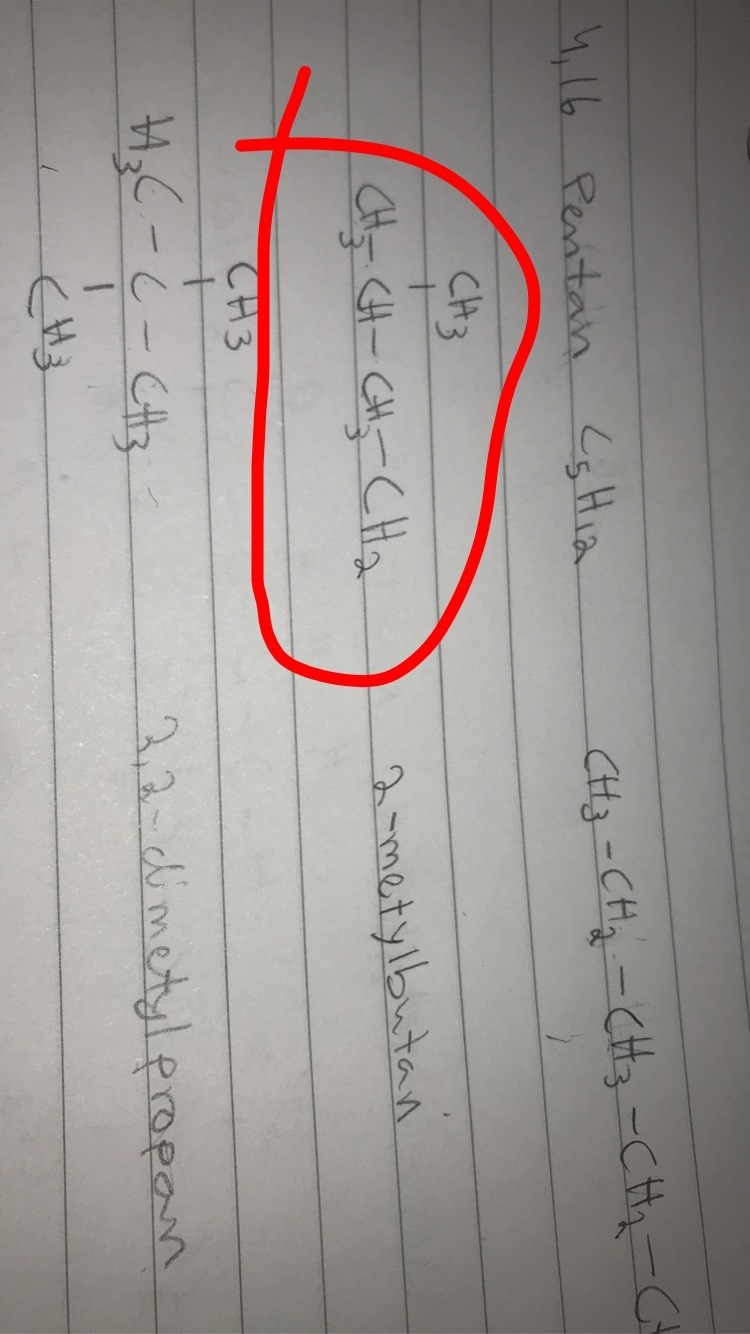 4,16 Pentan C5H12 CH3-CH2-CH3-CH2-
CH3
|
CH3-CH-CH3-CH2 2-metylbutan
CH3
|
H3C-C-CH3 2,2-dimetylpropan
|
CH3